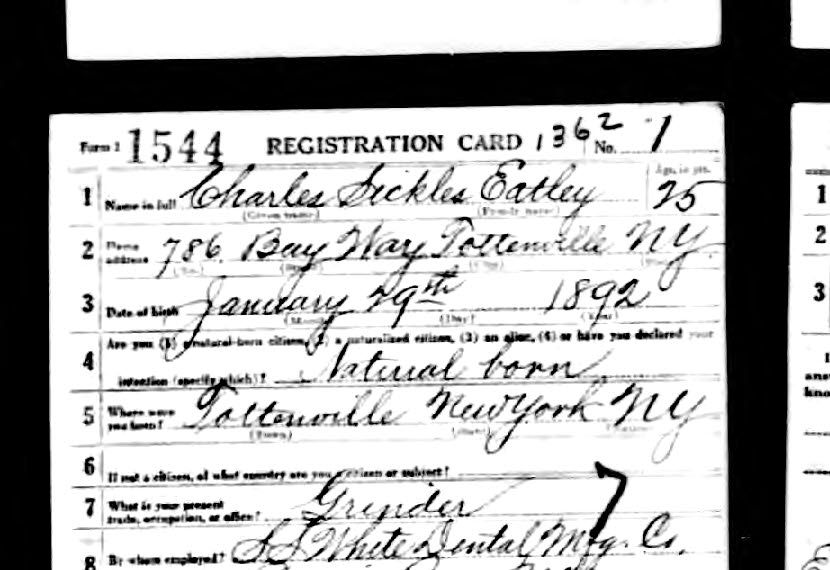 Form 1 1544 REGISTRATION CARD 1362 No. 1
1 Name in full Charles Sickles Eatley 25
(Given name) (Family name) Age, in yrs.
2 Home address 786 Bay Way Tottenville NY.
(No.) (Street) (City) (State)
3 Date of birth January 29th 1892
(Month) (Day) (Year)
Are you (1) a natural-born citizen, (2) a naturalized citizen, (3) an alien, (4) or have you declared your
4 intention (specify which)? Natural born
5 Where were you born? Tottenville New York NY
(Town) (State)
6 If not a citizen, of what country are you a citizen or subject?
7 What is your present trade, occupation, or office? Grinder 7
8 By whom employed? SS White Dental Mfg. Co.
1
2
3